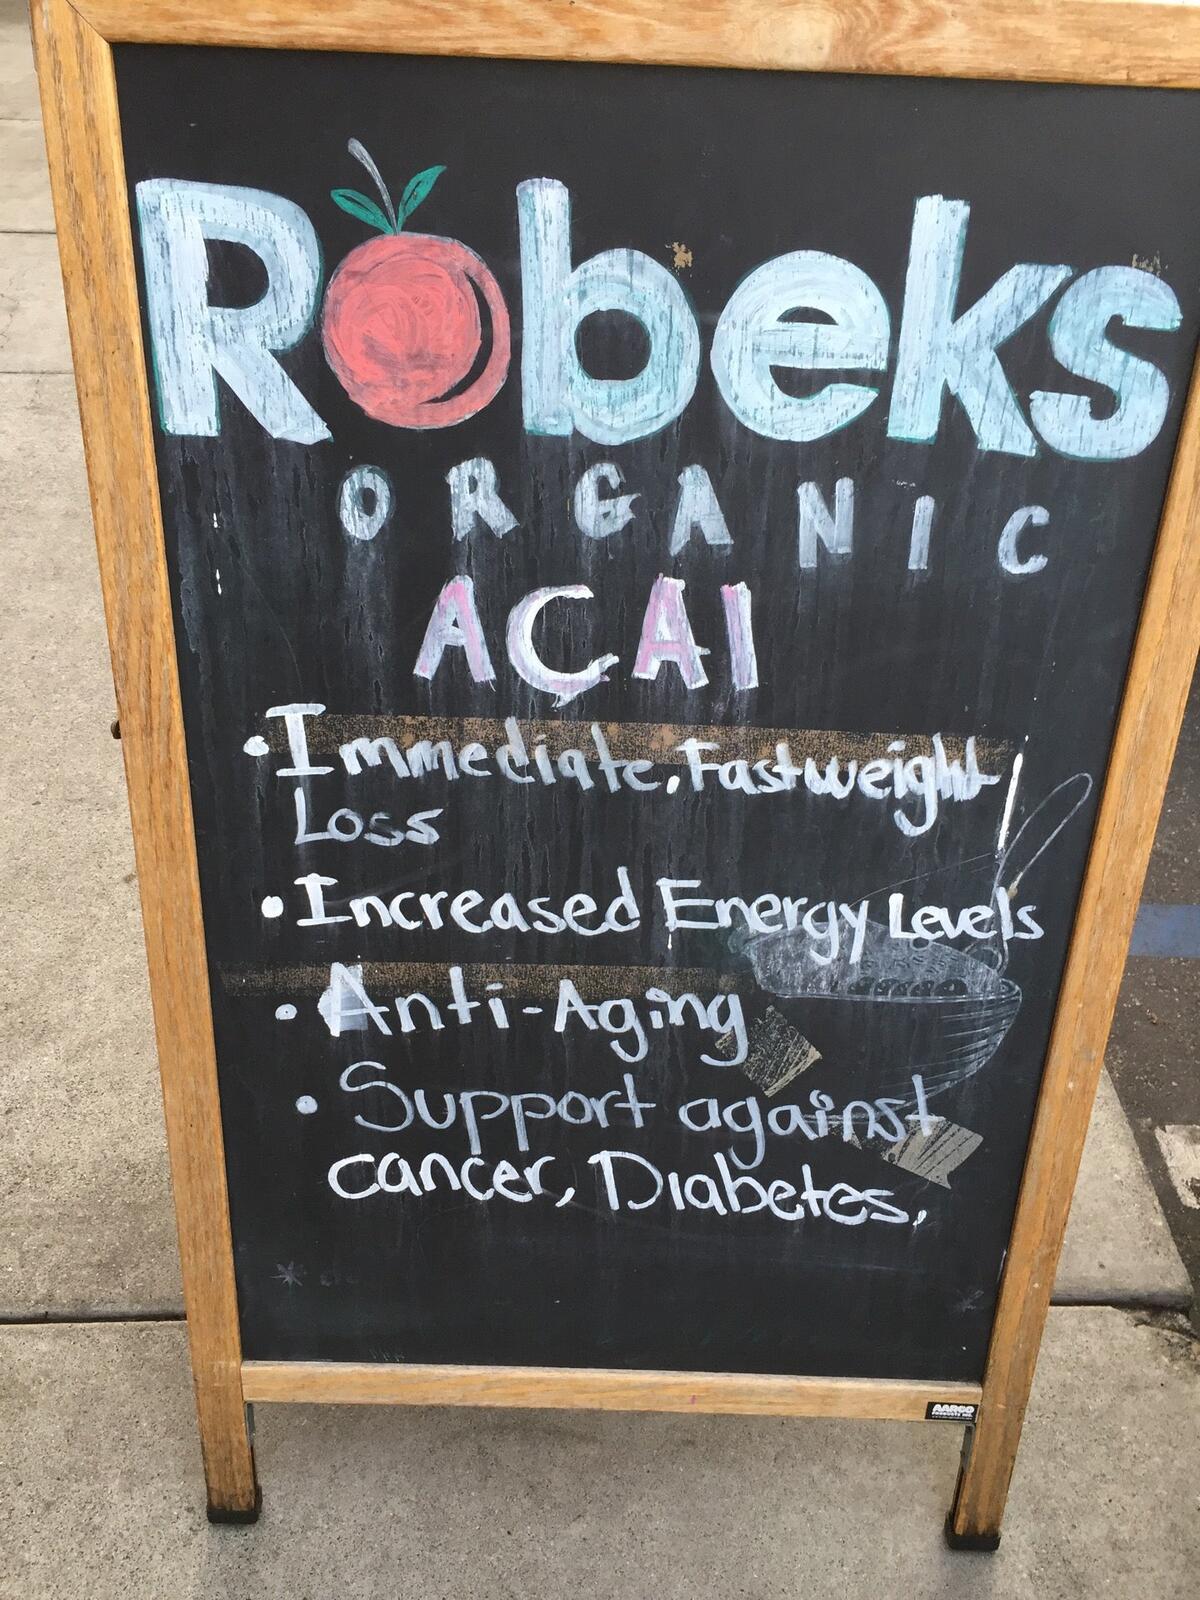 Robeks
ORGANIC
AÇAI
• Immediate, Fast weight
Loss
• Increased Energy Levels
• Anti-Aging
• Support against
cancer, Diabetes,
AARCO
PRODUCTS INC.